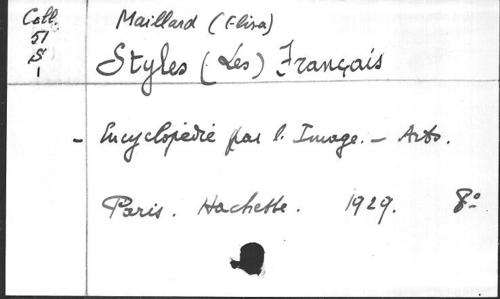 Coll.
51
S
1
Maillard (Elisa)
Styles (Les) Français
- Encyclopédie par l'Image. - Arts.
Paris. Hachette. 1929. 8º